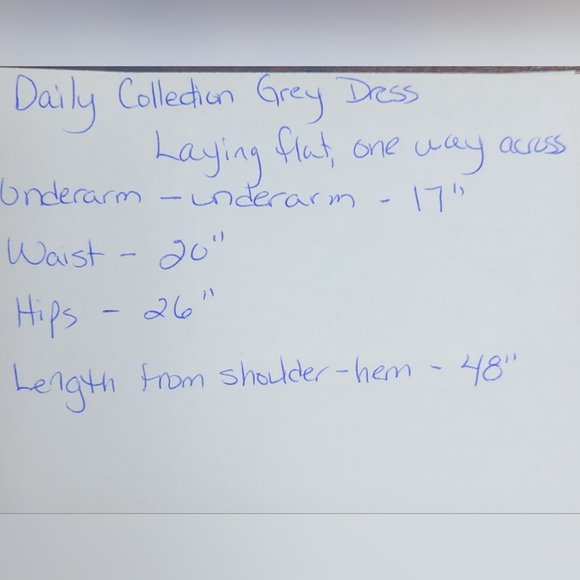 Daily Collection Grey Dress
Laying flat, one way across
Underarm - underarm - 17"
Waist - 20"
Hips - 26"
Length from shoulder-hem - 48"